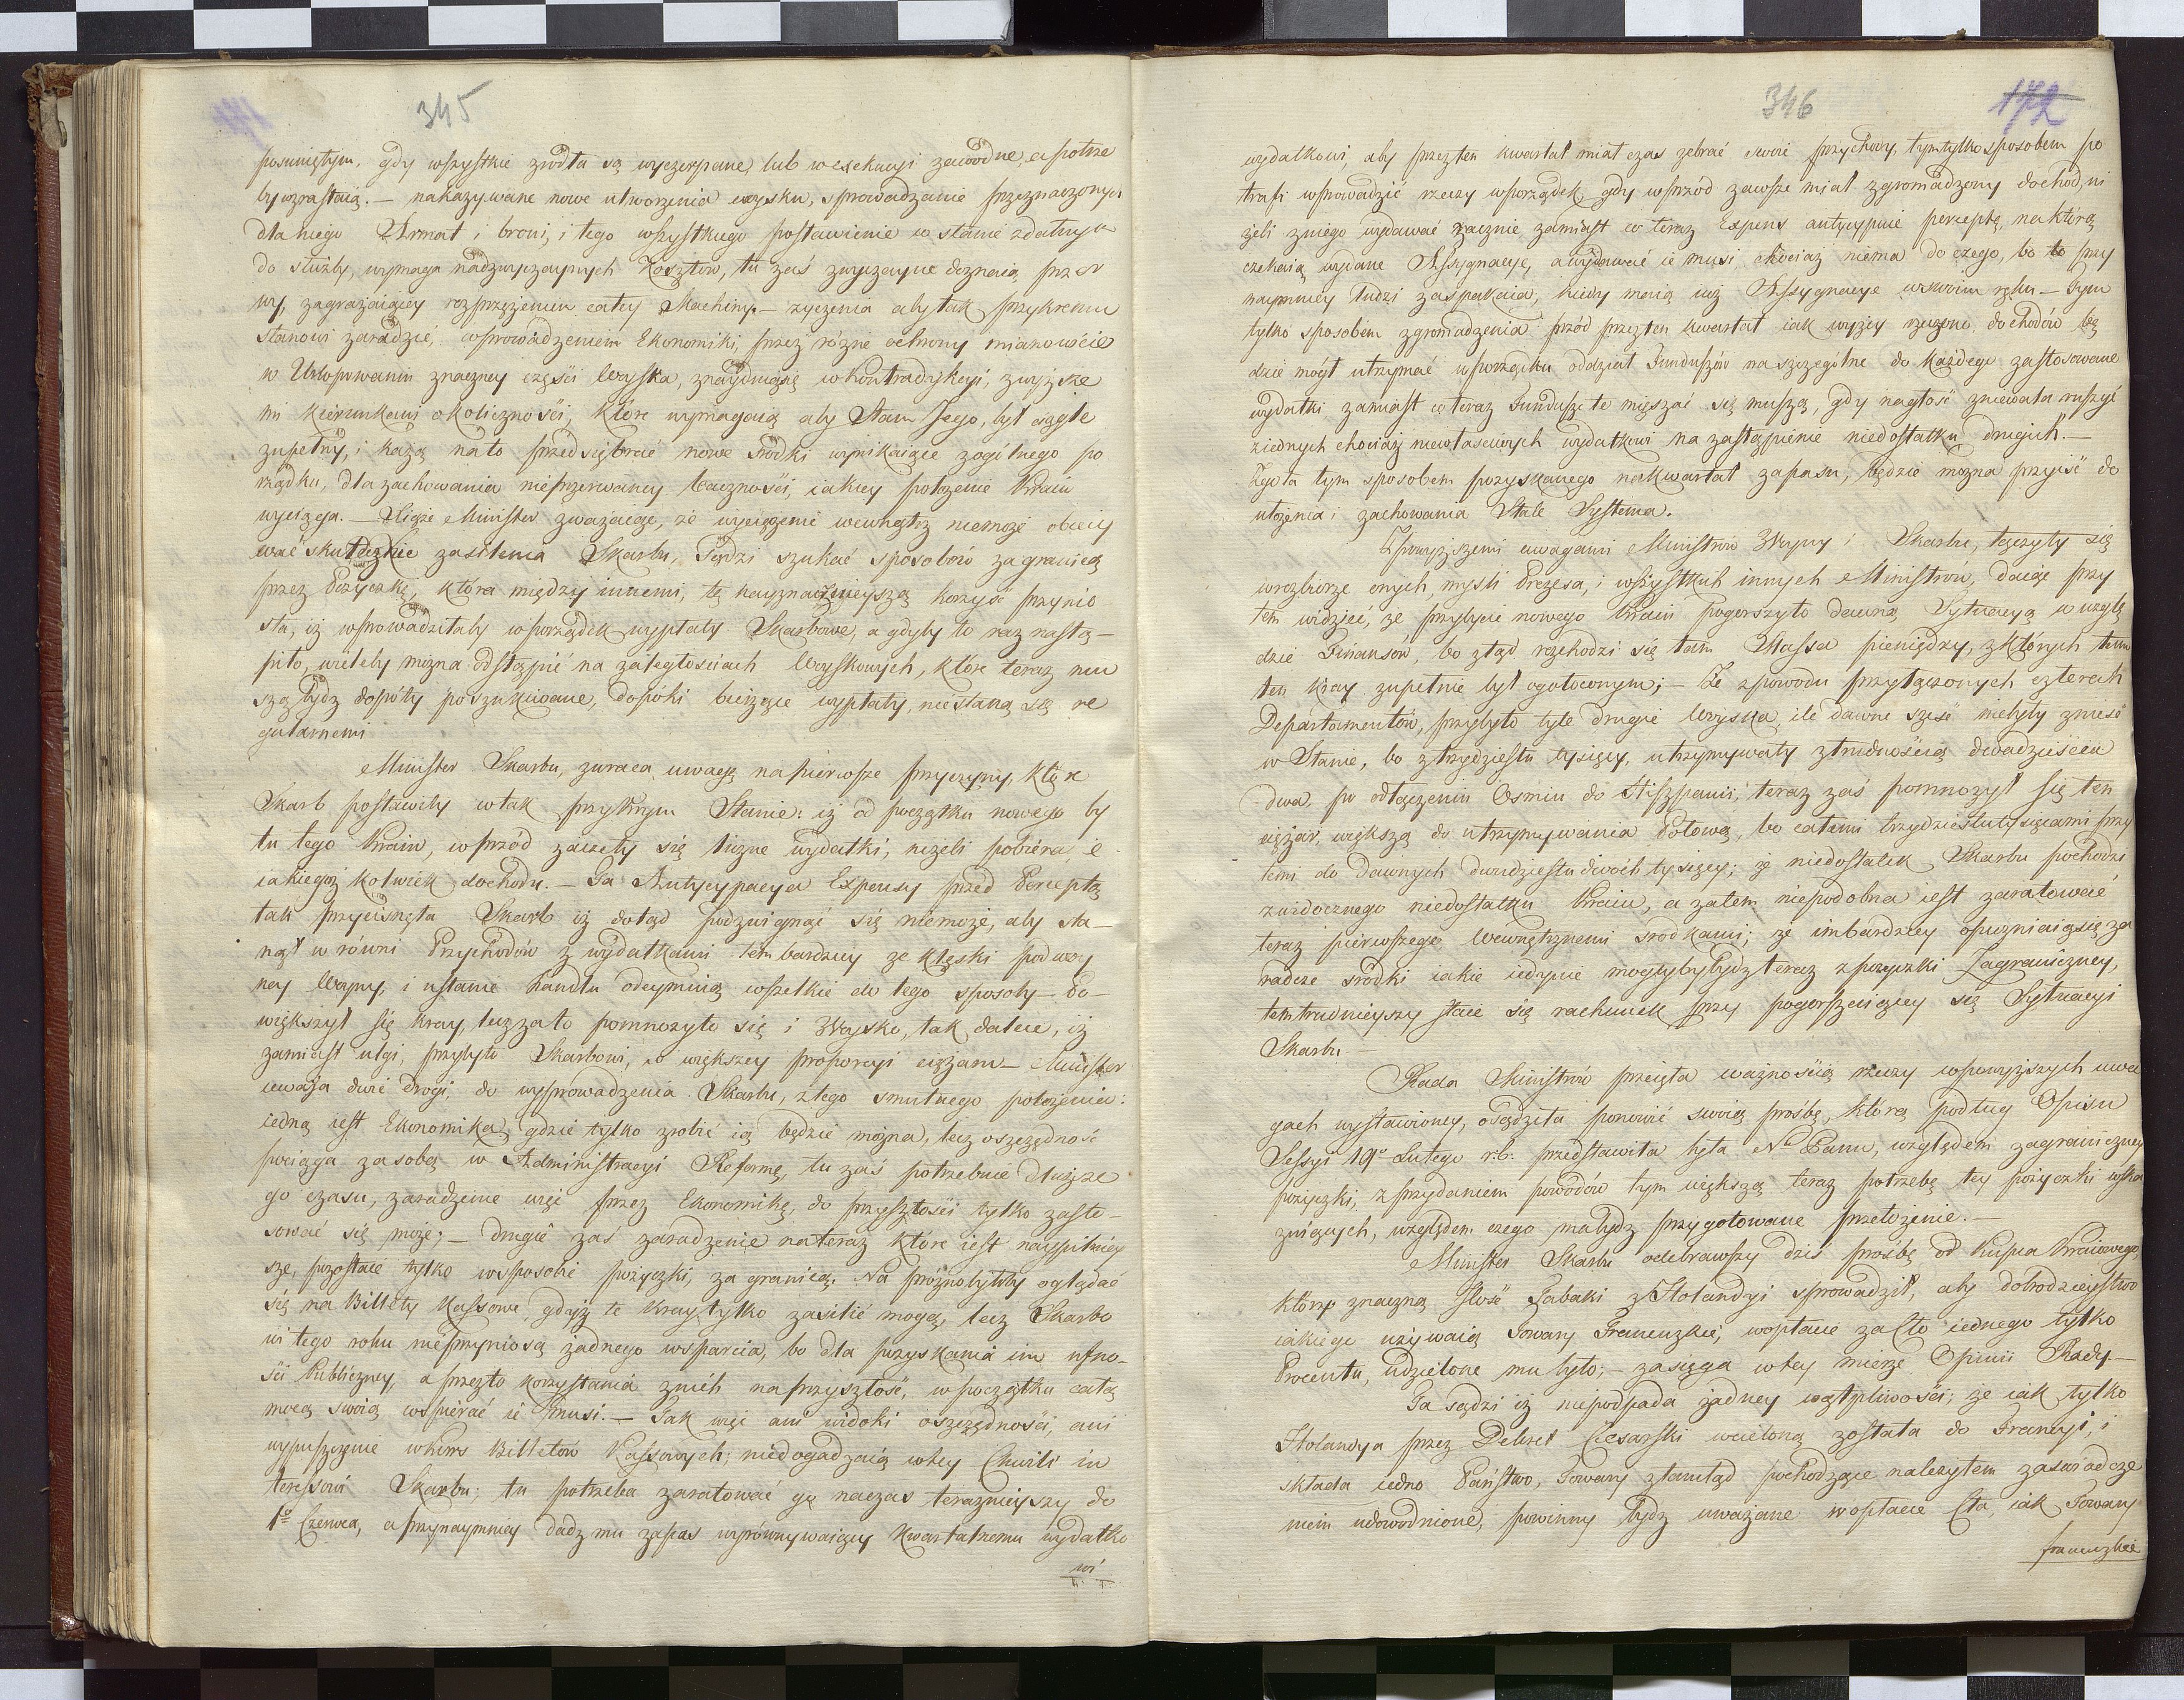 345
posuniętym, gdy wszystkie źrodła są wyczerpane, lub w exekucyi zawodne, a potrze
by wzrastaią. — nakazywane nowe utworzenia woyska, sprowadzenie przeznaczonych
dla niego Armat i broni, i tego wszystkiego postawienie w stanie zdatnym
do służby, wymaga nadzwyczaynych kosztów, tu zaś zwyczayne doznaią przer
wy, zagrażaiącey rozprzężeniem całey Machiny. — życzenia aby tak przykremu
Stanowi zaradzić, wprowadzeniem Ekonomiki, przez różne ochrony mianowicie
w Urlopowaniu znaczney części Woyska, znayduią się w kontradykcyi, z wyższe
mi kierunkami okoliczności, które wymagaią aby Stan Jego, był ciągle
zupełny, i każą na to przedsiębrać nowe środki wynikaiące z ogólnego po
rządku, dla zachowania nieprzerwaney baczności, iakiey położenie Kraiu
wyciąga. — Więc Minister zważaiąc, że wyciągnienie wewnątrz niemoże obiecy
wać skutecznie zasilenia Skarbu, Sądzi szukać sposobów za granicą
przez Pożyczkę, która między innemi, tę nayznacznieyszą korzyść przynio
sła, iż wprowadziłaby w porządek wypłaty Skarbowe, a gdyby to raz nastą—
piło, wieleby można odstąpić na zaległościach Woyskowych, które teraz mu
szą bydź dopóty poszukiwane, dopóki bieżące wypłaty, niestaną się re
gularnemi
Minister Skarbu, zwraca uwagę na pierwsze przyczyny, które
Skarb postawiły w tak przykrym Stanie: iż od początku nowego by
tu tego Kraiu, wprzód zaczęły się liczne wydatki, niżeli pobierać
iakiegoż kolwiek dochodu. — Ta Antycypacya Expensy przed Perceptą
tak przycisnęła Skarb iż dotąd podzwignąć się niemoże, aby sta—
nął w równi Przychodów z wydatkami tem bardziey że klęski podwoy
ney Woyny, i ustanie handlu odeymuią wszelkie do tego sposoby — Po—
większył się kray, lecz za to pomnożyło się i Woysko, tak dalece, iż
zamiast ulgi, przybyło Skarbowi, w większey proporcyi ciężaru — Minister
uważa dwie drogi, do wyprowadzenia Skarbu, z tego smutnego położenia:
iedną iest Ekonomika, gdzie tylko zrobić ią będzie można, lecz oszczędność
pociąga za sobą w Administracyi Reformę, tu zaś potrzebuie dłuższe
go czasu, zaradzenie więc przez Ekonomikę, do przyszłości tylko zasto—
sować się może; — drugie zaś zaradzenie na teraz które iest naypilniey
sze, pozostaie tylko w sposobie pożyczki, za granicą. Na próżno byłoby oglądać
się na Billety Kassowe, gdyż te Kray tylko zasilić mogą, lecz Skarbo
wi tego roku nieprzyniosą żadnego wsparcia, bo dla pozyskania im ufno—
ści Publiczney, a przez to korzystania z nich na przyszłość, w początku całą
mocą swoią wspierać ie musi. — Tak więc ani widoki oszczędności, ani
wypuszczenie w kurs Billetów Kassowych, niedogadzaią w tey Chwili in
teressowi Skarbu; tu potrzeba zaratować go na czas teraznieyszy do
1º Czerwca, a przynaymniey dadz mu zapas wyrównywaiący kwartalnemu wydatko
wi
346
172
wydatkowi, aby przez ten kwartał miał czas zebrać swoie przychody, tym tylko sposobem po
trafi wprowadzić rzeczy w porządek, gdy wprzód zawsze miał zgromadzony dochod, ni
żeli z niego wydawać zacznie, zamiast co teraz Expens antycypuie perceptę, na którą
czekaią wydane Assygnacye, a wydawać ie musi, chociaż niema do czego, bo to przy
naymniey ludzi zaspakaia, kiedy maią iuż Assygnacye w swoim ręku — Tym
tylko sposobem zgromadzenia przód przez ten kwartał iak wyżey rzeczono, dochodów bę
dzie mógł utrzymać w porządku oddział Funduszów na szczególne do każdego zastosowane
wydatki zamiast co teraz Fundusze te mięszać się muszą, gdy nagłość zniewala ruszyć
z iednych chociaż niewłasciwych wydatkowi na zastąpienie niedostatku drugich. —
Z tym sposobem pozyskanego na kwartał zapasu, będzie można przyiść do
ułożenia i zachowania Stale Systema.
Z powyższemi uwagami Ministrów Woyny i Skarbu, łączyły się
w rozbiorze onych, myśli Prezesa, i wszystkich innych Ministrów, daiąc przy
tem widzieć, że przybycie nowego Kraiu pogorszyło dawną Sytuacyą w wzglę
dzie Finansów, bo ztąd rozchodzi się tam Massa pieniędzy, z których
ten kray zupełnie był ogołoconym; — Że z powodu przyłączonych czterech
Departamentów, przybyło tyle drugie Woyska, ile dawne sześć mebyły znieść
w Stanie, bo z trzydziestu tysięcy, utrzymywały z trudnością dwadzieścia
dwa, po odłączeniu Osmiu do Hiszpanii, teraz zaś pomnożył się ten
ciężar, większą do utrzymywania połową, bo całemi trzydziestu tysiącami przy
temi do dawnych dwudziestu dwóch tysięcy; że niedostatek Skarbu pochodzi
z widocznego niedostatku Kraiu, a zatem niepodobna iest zaratować
teraz pierwszego Wewnętrznemi srodkami; że im bardziey opuzniaią się za
radcze srodki iakie iedynie mogłyby bydz teraz z pożyczki Zagraniczney,
tem trudnieyszy staie się rachunek przy pogorszaiącey się Sytuacyi
Skarbu. —
Rada Ministrów przeięta ważnością rzeczy w powyższych uwa
gach wystawioney, osądziła ponowić swoią prośbę, którą podług Opisu
Sessyi 19º Lutego r. b. przedstawiła była Nº Panu, względem zagraniczney
pożyczki, z przydaniem powodów tym większą teraz potrzebę tey pożyczki wska
zuiących, względem czego ma bydz przygotowane przełożenie. —
Minister Skarbu odebrawszy dziś prośbę od Kupca Kraiowego
który znaczną Ilość Tabaki z Hollandyi sprowadził, aby dobrodzieystwo
iakiego używaią Towary Francuzkie, w opłacie za Cło iednego tylko
Procentu, udzielone mu było; — zasięga w tey mierze Opinii Rady. —
Ta sądzi iż niepodpada żadney wątpliwości; że iak tylko
Hollandya przez Dekret Cesarski wcieloną została do Francyi, i
składa iedno Państwo, Towary ztamtąd pochodzące należytem zaswiadcze
niem udowodnione, powinny bydz uważane w opłacie Cła, iak Towary
francuzkie